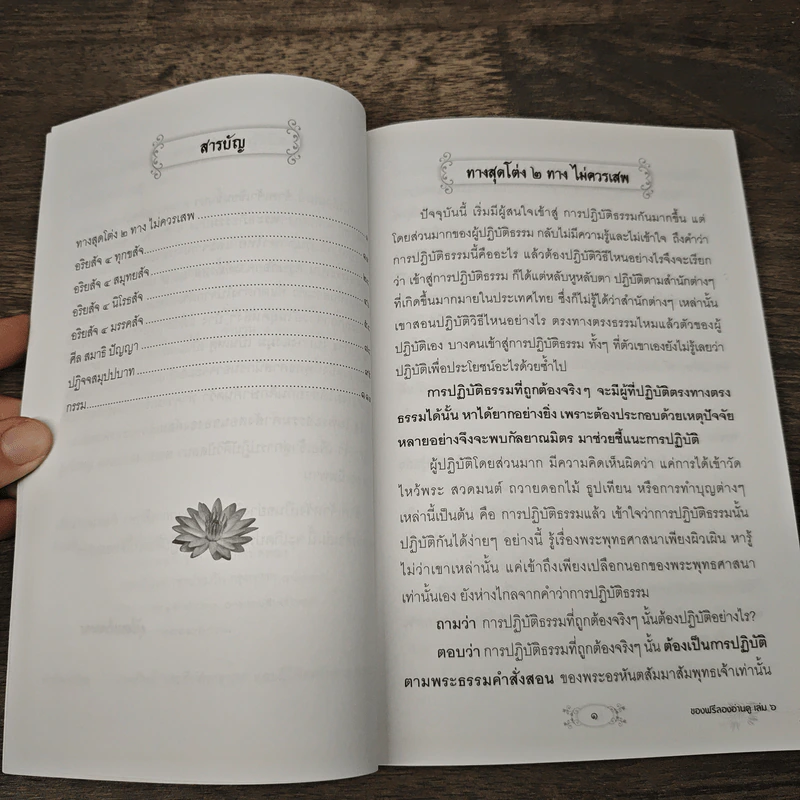 สารบัญ
ทางสุดโต่ง ๒ ทาง ไม่ควรเสพ
อริยสัจ ๔ ทุกขสัจ
อริยสัจ ๔ สมุทยสัจ
อริยสัจ ๔ นิโรธสัจ
อริยสัจ ๔ มรรคสัจ
ศีล สมาธิ ปัญญา
ปฏิจจสมุปปบาท
กรรม
ทางสุดโต่ง ๒ ทาง ไม่ควรเสพ
ปัจจุบันนี้ เริ่มมีผู้สนใจเข้าสู่ การปฏิบัติธรรมกันมากขึ้น แต่
โดยส่วนมากของผู้ปฏิบัติธรรม กลับไม่มีความรู้และไม่เข้าใจ ถึงคำว่า
การปฏิบัติธรรมนี้คืออะไร แล้วต้องปฏิบัติวิธีไหนอย่างไรจึงจะเรียก
ว่า เข้าสู่การปฏิบัติธรรม ก็ได้แต่หลับหูหลับตา ปฏิบัติตามสำนักต่างๆ
ที่เกิดขึ้นมากมายในประเทศไทย ซึ่งก็ไม่รู้ได้ว่าสำนักต่างๆ เหล่านั้น
เขาสอนปฏิบัติวิธีไหนอย่างไร ตรงทางตรงธรรมไหมแล้วตัวของผู้
ปฏิบัติเอง บางคนเข้าสู่การปฏิบัติธรรม ทั้งๆ ที่ตัวเขาเองยังไม่รู้เลยว่า
ปฏิบัติเพื่อประโยชน์อะไรด้วยซ้ำไป
การปฏิบัติธรรมที่ถูกต้องจริงๆ จะมีผู้ที่ปฏิบัติตรงทางตรง
ธรรมได้นั้น หาได้ยากอย่างยิ่ง เพราะต้องประกอบด้วยเหตุปัจจัย
หลายอย่างจึงจะพบกัลยาณมิตร มาช่วยชี้แนะการปฏิบัติ
ผู้ปฏิบัติโดยส่วนมาก มีความคิดเห็นผิดว่า แค่การได้เข้าวัด
ไหว้พระ สวดมนต์ ถวายดอกไม้ ธูปเทียน หรือการทำบุญต่างๆ
เหล่านี้เป็นต้น คือ การปฏิบัติธรรมแล้ว เข้าใจว่าการปฏิบัติธรรมนั้น
ปฏิบัติกันได้ง่ายๆ อย่างนี้ รู้เรื่องพระพุทธศาสนาเพียงผิวเผิน หารู้
ไม่ว่าเขาเหล่านั้น แค่เข้าถึงเพียงเปลือกนอกของพระพุทธศาสนา
เท่านั้นเอง ยังห่างไกลจากคำว่าการปฏิบัติธรรม
ถามว่า การปฏิบัติธรรมที่ถูกต้องจริงๆ นั้นต้องปฏิบัติอย่างไร?
ตอบว่า การปฏิบัติธรรมที่ถูกต้องจริงๆ นั้น ต้องเป็นการปฏิบัติ
ตามพระธรรมคำสั่งสอน ของพระอรหันตสัมมาสัมพุทธเจ้าเท่านั้น
๑
ของฟรีลองอ่านดู เล่ม ๖